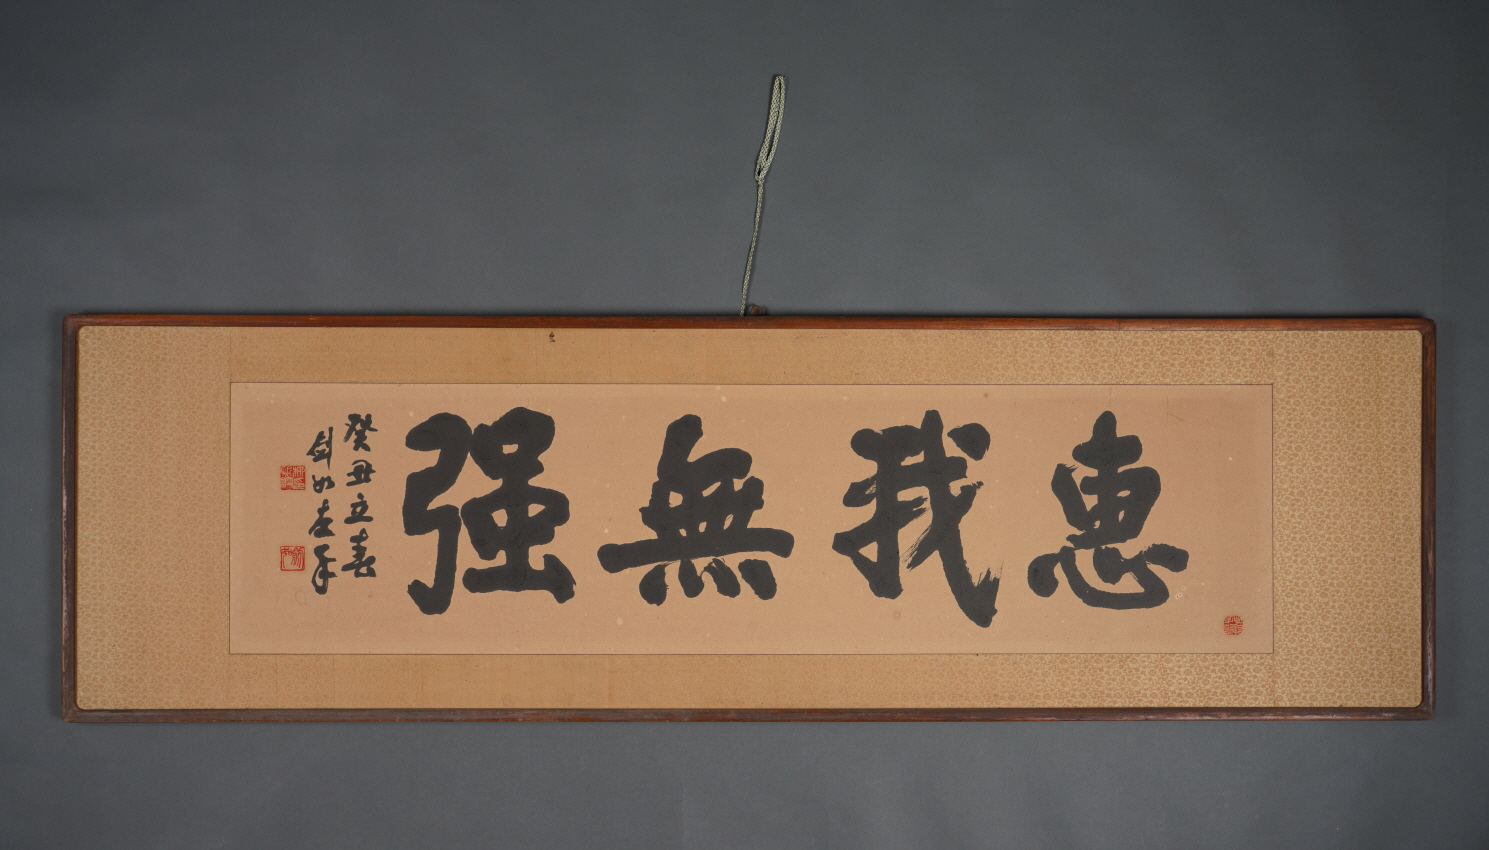 惠我無强
癸丑立春
劍如老人